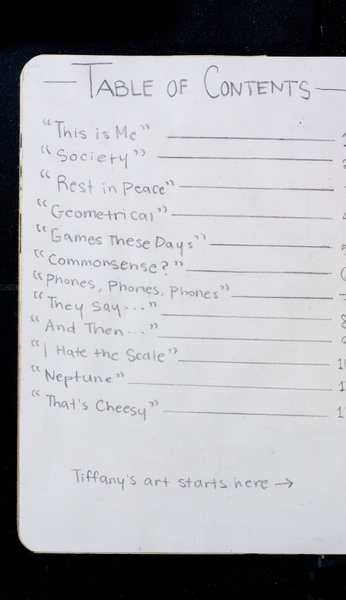 TABLE OF CONTENTS
"This is Me" 1
"Society" 2
"Rest in Peace"
"Geometrical" 4
"Games These Days" 5
"Commonsense?" 6
"Phones, Phones, Phones" 7
"They Say..." 8
"And Then..." 9
"I Hate the Scale" 10
"Neptune" 1
"That's Cheesy" 1
Tiffany's art starts here →